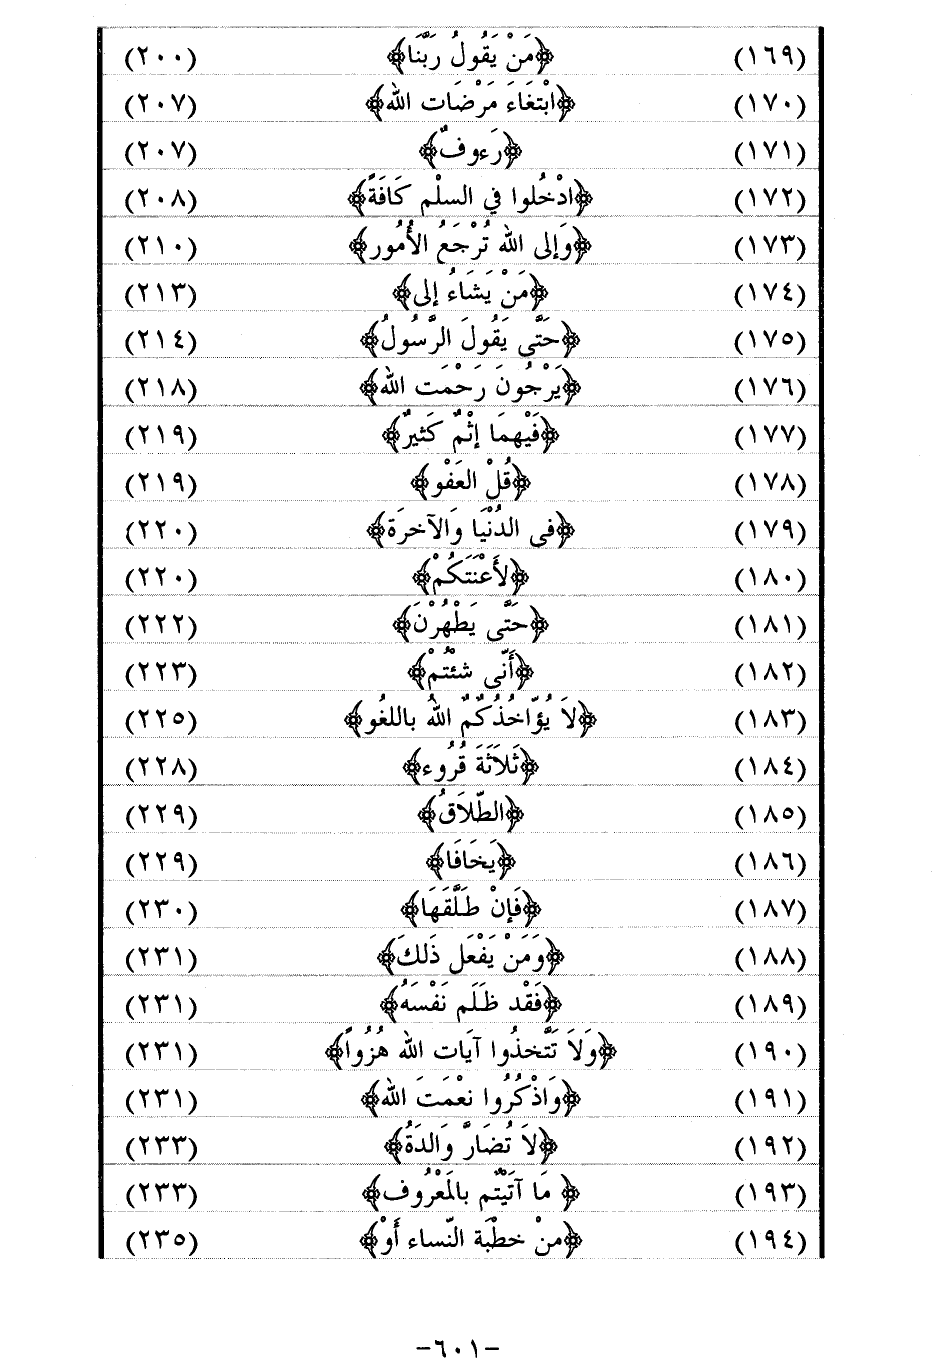 (١٦٩) ﴿مَنْ يَقُولُ رَبَّنَا﴾ (٢٠٠)
(١٧٠) ﴿ابْتِغَاءَ مَرْضَات الله﴾ (٢٠٧)
(١٧١) ﴿رَءوفٌ﴾ (٢٠٧)
(١٧٢) ﴿ادْخُلوا في السلْم كَافَةً﴾ (٢٠٨)
(١٧٣) ﴿وَإلى الله تُرْجَعُ الأُمُور﴾ (٢١٠)
(١٧٤) ﴿مَنْ يَشَاءُ إلى﴾ (٢١٣)
(١٧٥) ﴿حَتَّى يَقُولَ الرَّسُولُ﴾ (٢١٤)
(١٧٦) ﴿يَرْجُونَ رَحْمَت الله﴾ (٢١٨)
(١٧٧) ﴿فَيْهمَا إثْمٌ كَثيرٌ﴾ (٢١٩)
(١٧٨) ﴿قُلْ العَفْو﴾ (٢١٩)
(١٧٩) ﴿فى الدُنْيَا وَالآخرَة﴾ (٢٢٠)
(١٨٠) ﴿لأَعْنَتَكُمْ﴾ (٢٢٠)
(١٨١) ﴿حَتَّى يَطْهُرْنَ﴾ (٢٢٢)
(١٨٢) ﴿أَنّى شئْتُمْ﴾ (٢٢٣)
(١٨٣) ﴿لاَ يُؤَاخُذُكٌمٌ اللهُ باللغُو﴾ (٢٢٥)
(١٨٤) ﴿ثَلاَثَةَ قُرُوء﴾ (٢٢٨)
(١٨٥) ﴿الطّلاَقُ﴾ (٢٢٩)
(١٨٦) ﴿يَخَافَا﴾ (٢٢٩)
(١٨٧) ﴿فَإنْ طَلَّقَهَا﴾ (٢٣٠)
(١٨٨) ﴿وَمَنْ يَفْعَل ذَلكَ﴾ (٢٣١)
(١٨٩) ﴿فَقْد ظَلَم نَفْسَهُ﴾ (٢٣١)
(١٩٠) ﴿وَلاَ تَتَّخذُوا آيَات الله هُزُواً﴾ (٢٣١)
(١٩١) ﴿وَاذْكُرُوا نعْمَتَ الله﴾ (٢٣١)
(١٩٢) ﴿لاَ تُضَارَّ وَالدَةُ﴾ (٢٣٣)
(١٩٣) ﴿ مَا آتَيْتُم بالَمعْرُوف﴾ (٢٣٣)
(١٩٤) ﴿منْ خطْبَة النّساء أَوْ﴾ (٢٣٥)
-٦٠١-